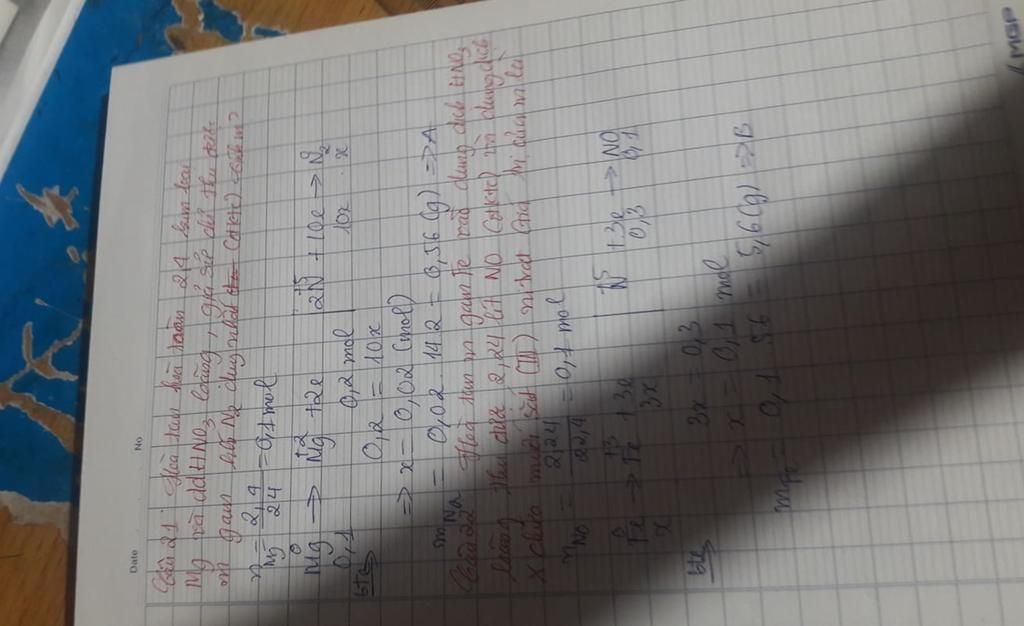 Date No
Câu 21. Hoà tan hoàn toàn 2,4 gam kim loại
Mg vào dd HNO3 loãng, giả sử chỉ thu được
m gam khí N2 duy nhất (đktc)
nMg = 2,4/24 = 0,1 mol
Mg⁰ → Mg⁺² + 2e | 2N⁺⁵ + 10e → N2⁰
0,1 0,2 mol | 10x x
bte 0,2 = 10x
=> x = 0,02 (mol)
mN2 = 0,02 . 142 = 0,56 (g) => A
Câu 22 Hoà tan m gam Fe vào dung dịch HNO3
loãng thu được 2,24 lít NO (đktc) và dung dịch
X chứa muối sắt (III) nitrat Giá trị của m là
nNO = 2,24/22,4 = 0,1 mol
Fe⁰ → Fe⁺³ + 3e | N⁺⁵ + 3e → NO
x 3x | 0,3 0,1
bte 3x = 0,3
=> x = 0,1 mol
mFe = 0,1 . 56 = 5,6 (g) => B
MGP